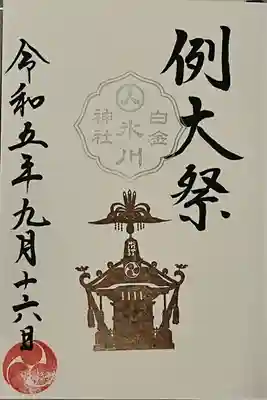 例大祭
白金
氷川
神社
令和五年九月十六日